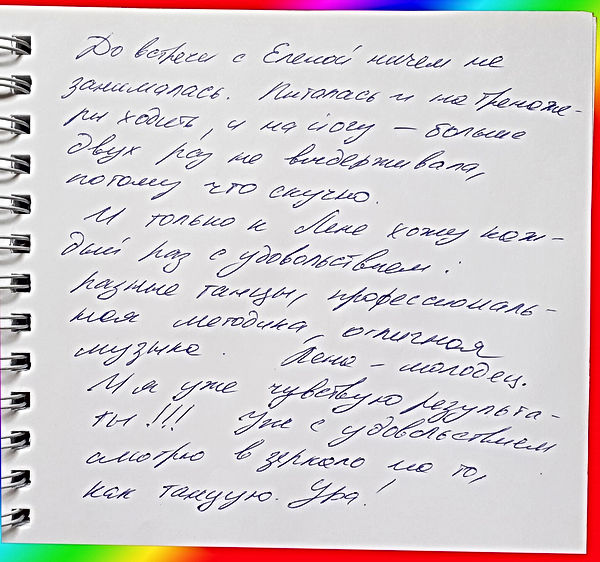 До встречи с Еленой ничем не
занималась. Питалась и на тренаже-
ры ходить, и на йогу – больше
двух раз не выдерживала,
потому что скучно.
И только к Лене хожу каж-
дый раз с удовольствием:
разные танцы, профессиональ-
ная методика, отличная
музыка. Лена – молодец.
И я уже чувствую результа-
ты!!! Уже с удовольствием
смотрю в зеркало на то,
как танцую. Ура!